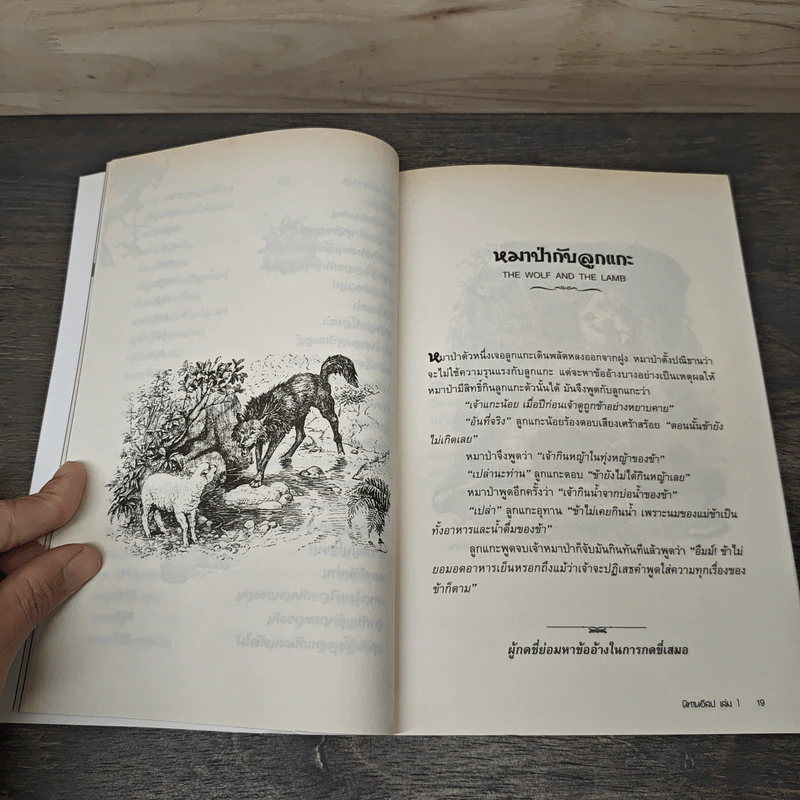 หมาป่ากับลูกแกะ
THE WOLF AND THE LAMB
หมาป่าตัวหนึ่งเจอลูกแกะเดินพลัดหลงออกจากฝูง หมาป่าตั้งปณิธานว่า
จะไม่ใช้ความรุนแรงกับลูกแกะ แต่จะหาข้ออ้างบางอย่างเป็นเหตุผลให้
หมาป่ามีสิทธิ์กินลูกแกะตัวนั้นได้ มันจึงพูดกับลูกแกะว่า
“เจ้าแกะน้อย เมื่อปีก่อนเจ้าดูถูกข้าอย่างหยาบคาย”
“อันที่จริง” ลูกแกะน้อยร้องตอบเสียงเศร้าสร้อย “ตอนนั้นข้ายัง
ไม่เกิดเลย”
หมาป่าจึงพูดว่า “เจ้ากินหญ้าในทุ่งหญ้าของข้า”
“เปล่านะท่าน” ลูกแกะตอบ “ข้ายังไม่ได้กินหญ้าเลย”
หมาป่าพูดอีกครั้งว่า “เจ้ากินน้ำจากบ่อน้ำของข้า”
“เปล่า” ลูกแกะอุทาน “ข้าไม่เคยกินน้ำ เพราะนมของแม่ข้าเป็น
ทั้งอาหารและน้ำดื่มของข้า”
ลูกแกะพูดจบเจ้าหมาป่าก็จับมันกินทันทีแล้วพูดว่า “อืมม์! ข้าไม่
ยอมอดอาหารเย็นหรอกถึงแม้ว่าเจ้าจะปฏิเสธคำพูดใส่ความทุกเรื่องของ
ข้าก็ตาม”
ผู้กดขี่ย่อมหาข้ออ้างในการกดขี่เสมอ
นิทานอีสป เล่ม 1 19